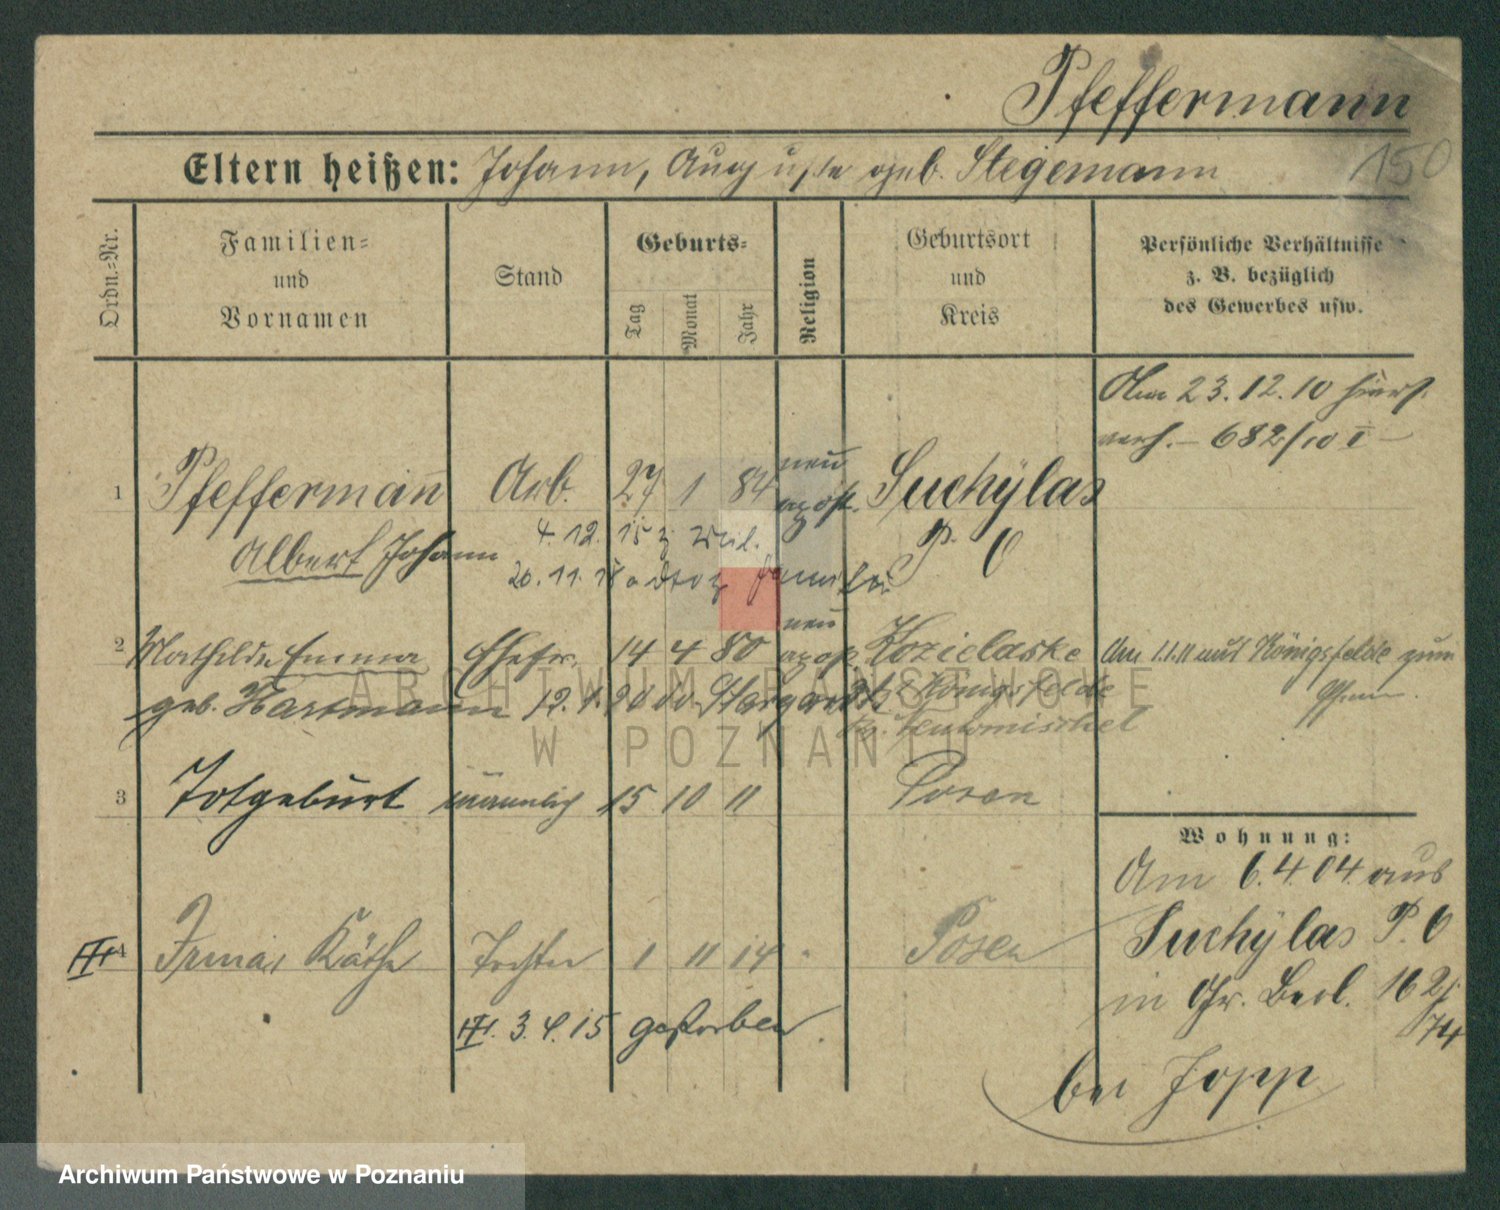 Pfeffermann
Eltern heißen: Johann, Auguste geb. Stegemann
150
Ordn.=Nr.
Familien=
und
Vornamen
Stand
Geburts=
Tag
Monat
Jahr
Religion
Geburtsort
und
Kreis
Persönliche Verhältnisse
z. B. bezüglich
des Gewerbes usw.
Am 23.12.10 hiers.
verh. – 682/10 I –
1 Pfeffermann Arb. 27 1 84 neu apost. Suchÿlas
Albert Johann P. O
4.12.15 z
20.11.18 Familie
2 Mathilde Emma Ehefr. 14 4 80 neu apop. Kozielaske Am 1.1.11 aus Königsfelde zum
geb. Hartmann 12.1. Stargardt Königsfelde
3 Totgeburt männlich 15 10 11 Posen
Wohnung:
Am 6.4.04 aus
Suchÿlas P. O
in Gr. Berl. 162
74
bei Jopp
4 Irma, Käthe Tochter 1 11 14 Posen
3.4.15 gestorben
ARCHIWUM PAŃSTWOWE
W POZNANIU
Archiwum Państwowe w Poznaniu